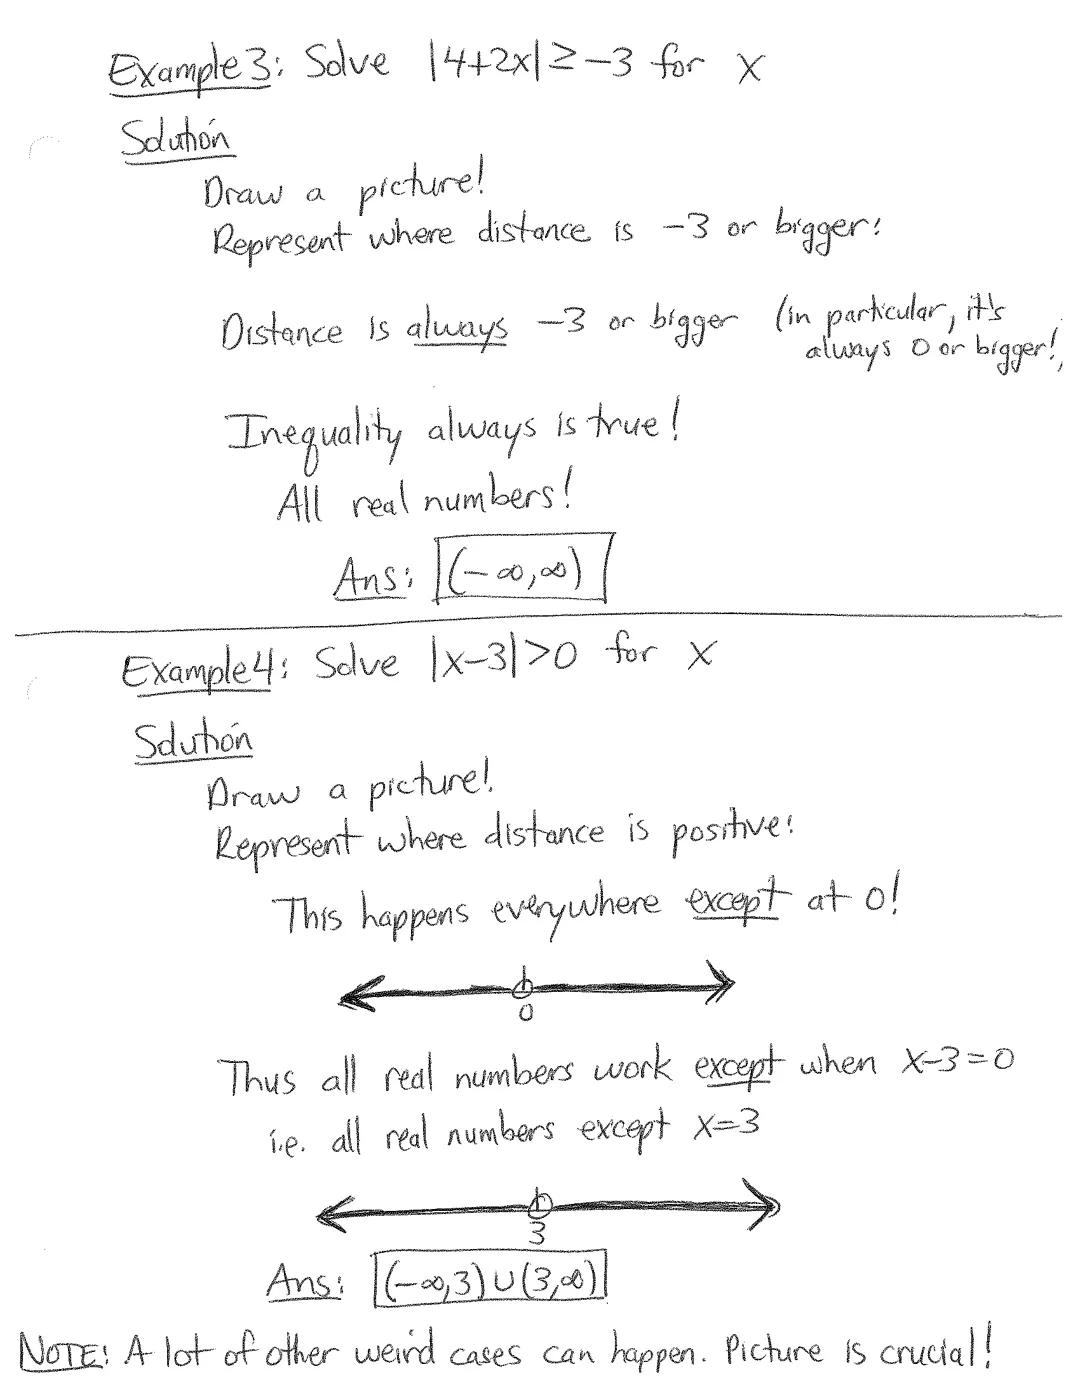 Example 3: Solve |4+2x| ≥ -3 for x
Solution
Draw a picture!
Represent where distance is -3 or bigger:
Distance is always -3 or bigger (in particular, it's
always 0 or bigger!)
Inequality always is true!
All real numbers!
Ans: (-∞,∞)
Example 4: Solve |x-3|>0 for x
Solution
Draw a picture!
Represent where distance is positive:
This happens everywhere except at 0!
0
Thus all real numbers work except when x-3=0
i.e. all real numbers except x=3
3
Ans: (-∞,3)∪(3,∞)
NOTE: A lot of other weird cases can happen. Picture is crucial!